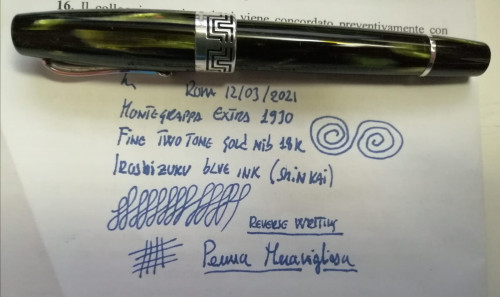 16. Il viene concordato preventivamente con
Roma 12/03/2021
Montegrappa Extra 1930
Fine Two Tone gold nib 18K
Iroshizuku blue ink (Shin Kai)
Reverse writing
Penna Meravigliosa